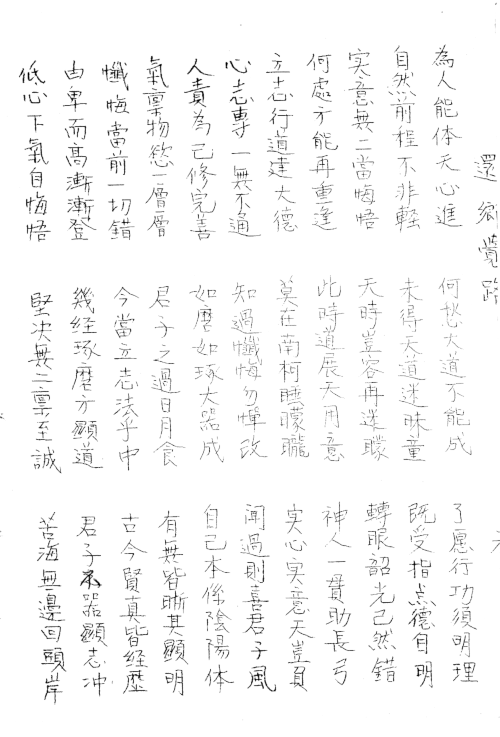 還鄉覺路
為人能体天心進 何愁大道不能成 了愿行功須明理
自然前程不非輕 未得天道迷昧童 既受指点德自明
实意無二當悔悟 天時豈容再迷矇 轉眼韶光已然錯
何處方能再重逢 此時道展天用意 神人一貫助長弓
立志行道達大德 莫在南柯睡矇矓 实心实意天豈負
心志專一無不通 知過懺悔勿憚改 聞過則喜君子風
人責為己修完善 如磨如琢大器成 自己本係陰陽体
氣禀物慾一層層 君子之過日月食 有無皆晰其顯明
懺悔當前一切錯 今當立志法乎中 古今賢真皆経歷
由卑而高漸漸登 幾経琢磨方顯道 君子不器顯志冲
低心下氣自悔悟 堅决無二禀至誠 苦海無邊回頭岸